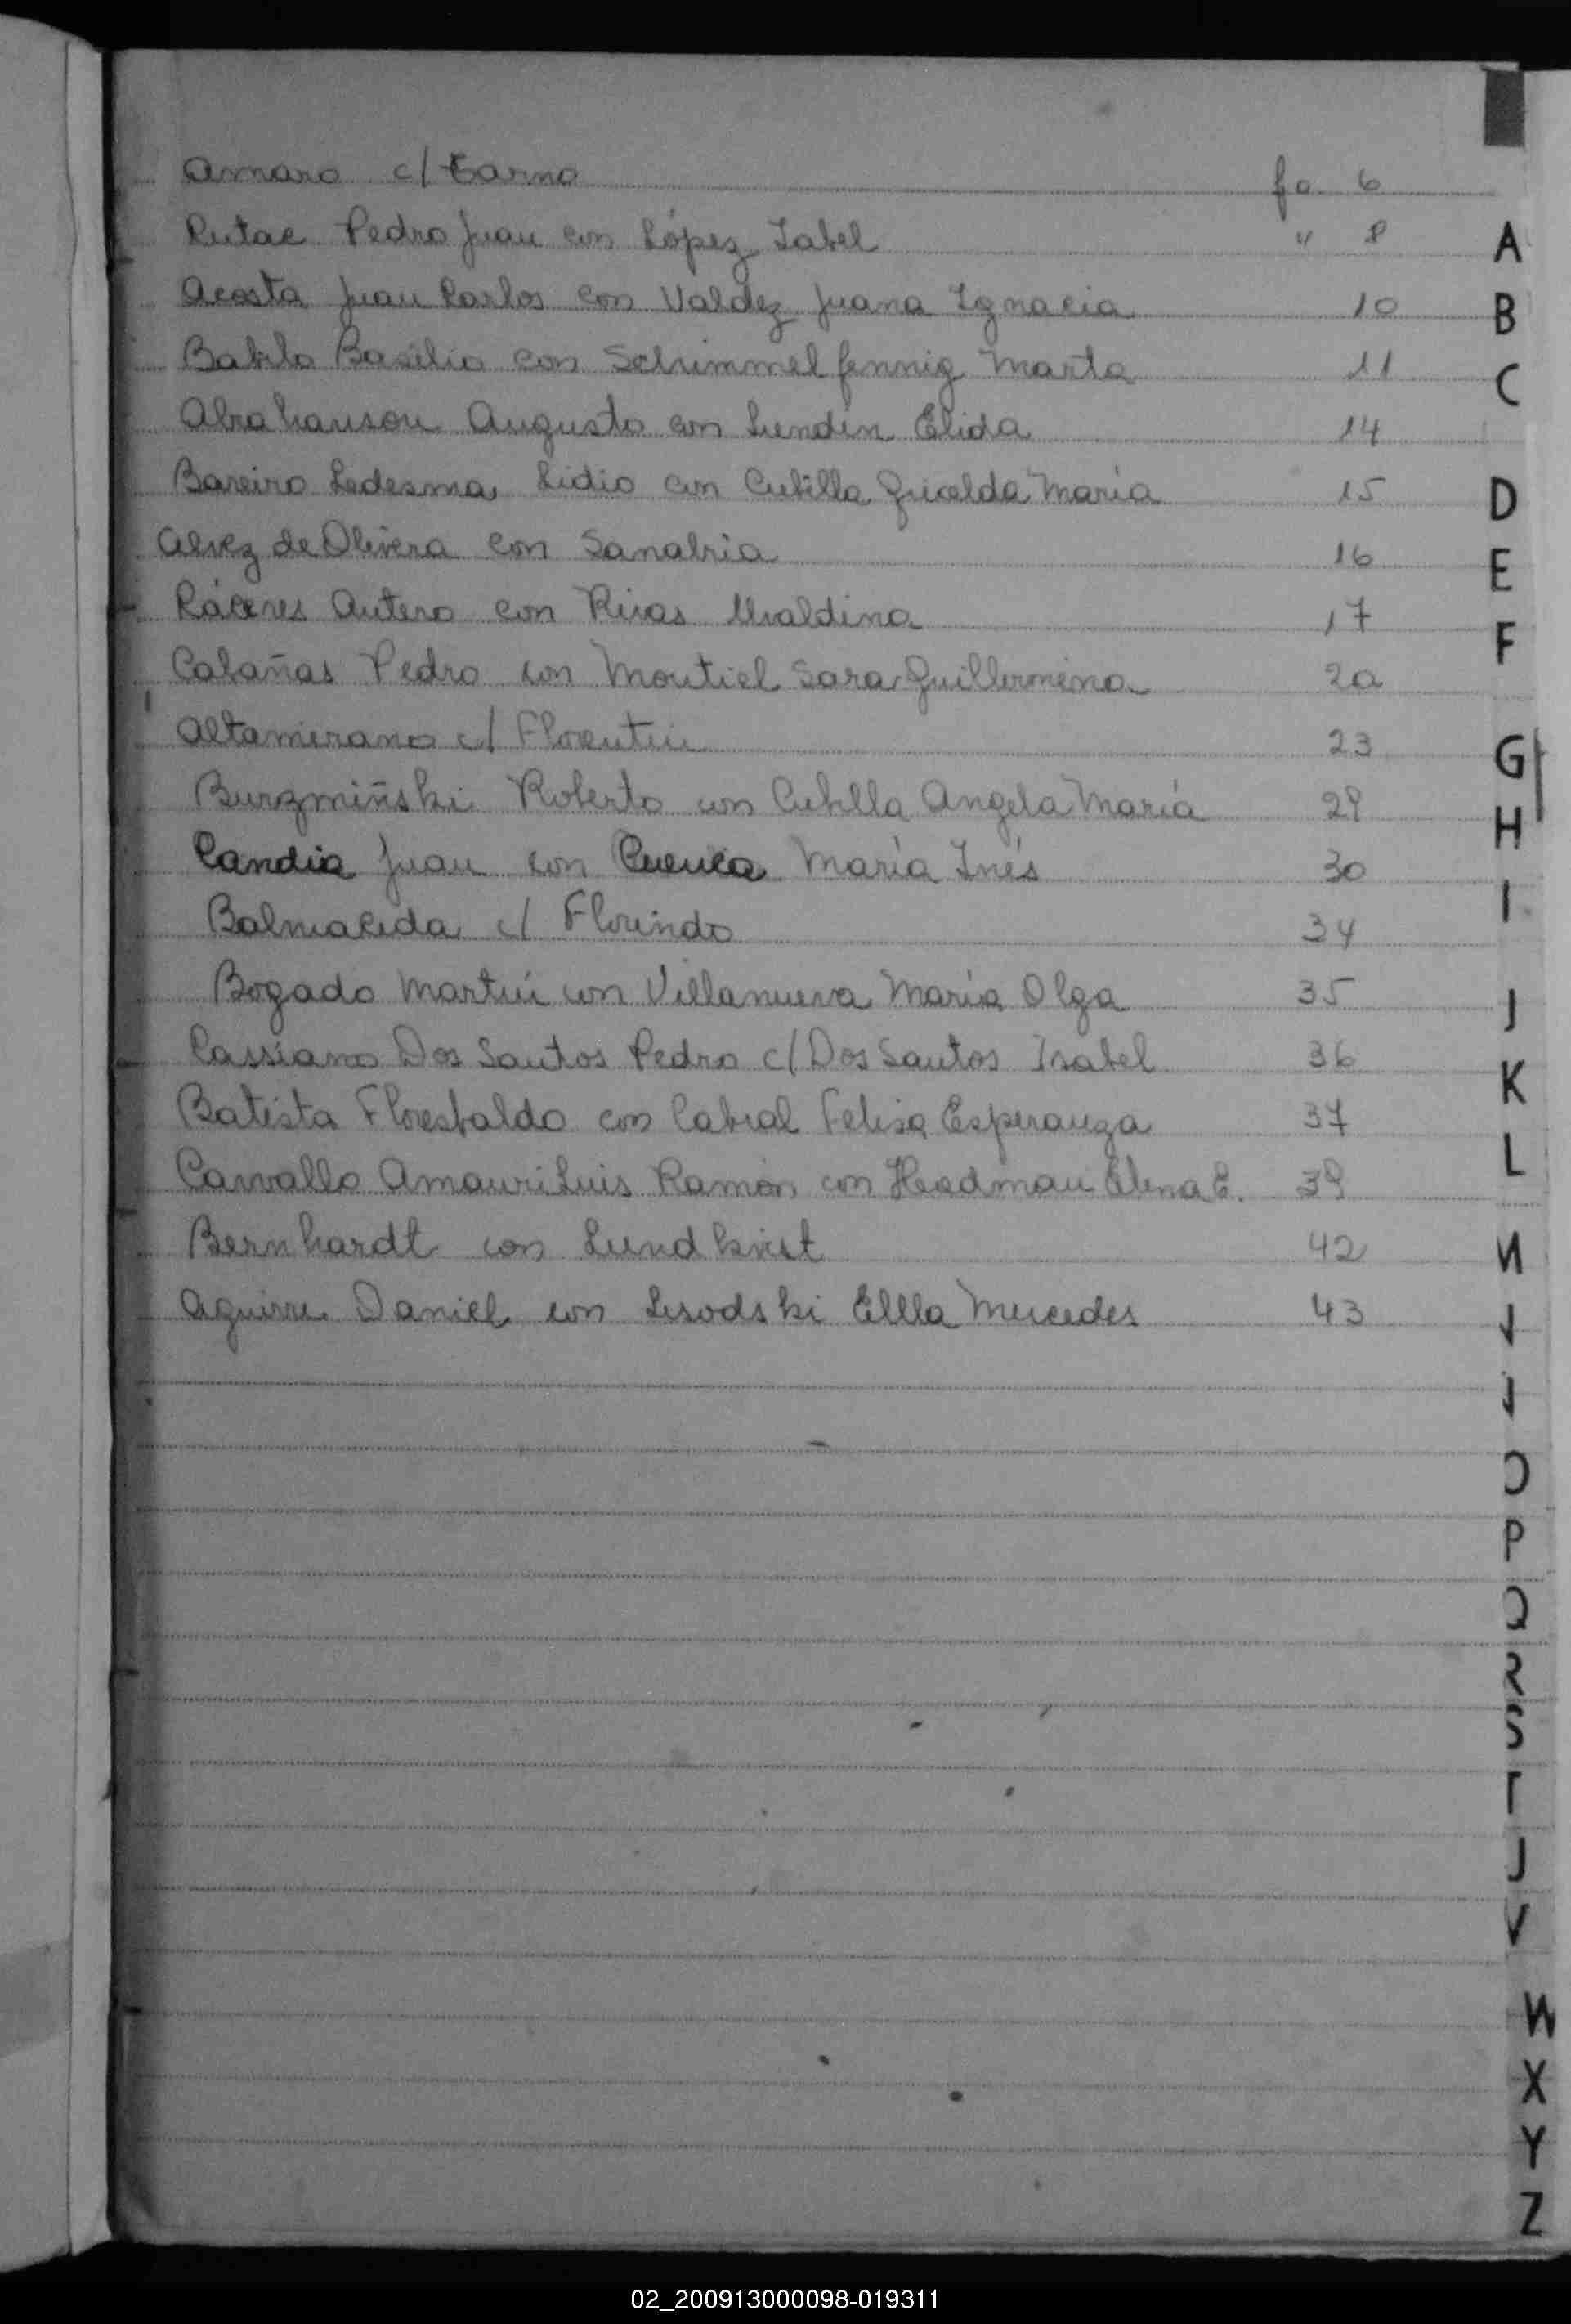 Amaro c/ Carno fo 6
Rutac Pedro Juan con López Isabel " 8
Acosta Juan Carlos con Valdez Juana Ignacia 10
Basilio con Schimmelfennig Marta 11
Abrahanson Augusto con Lundin Elida 14
Bareiro Ledesma Lidio con Cubilla Gricelda María 15
Alvez de Olivera con Sanabria 16
Cáceres Antero con Rivas Ubaldina 17
Cabañas Pedro con Montiel Sara Guillermina 20
Altamirano c/ Florentin 23
Burzmiñski Roberto con Cubilla Angela María 29
Candia Juan con Cuenca María Inés 30
Balmaceda c/ Florindo 34
Bogado Martín con Villanueva María Olga 35
Cassiano Dos Santos Pedro c/ Dos Santos Isabel 36
Batista Florisbaldo con Cabral Felisa Esperanza 37
Carvallo Amauri Luis Ramón con Hedman Elena E. 39
Bernhardt con Lundkvist 42
Aguirre Daniel con Lesodski Ellla Mercedes 43
A
B
C
D
E
F
G
H
I
J
K
L
O
P
Q
R
S
T
V
W
X
Y
Z
02_200913000098-019311